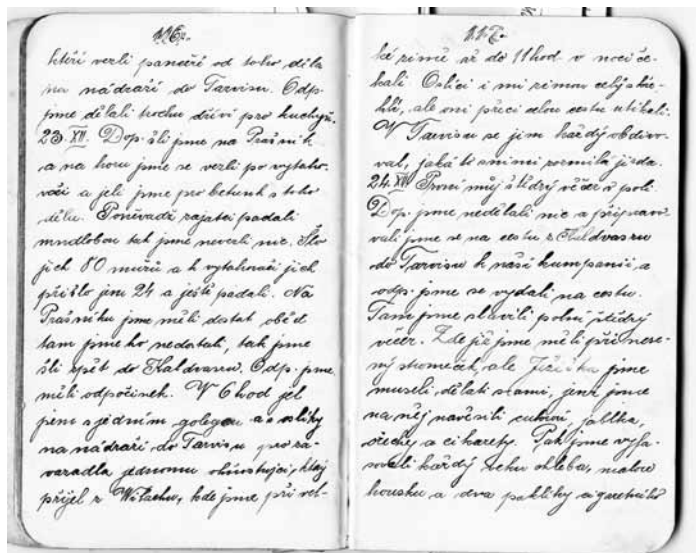 116.
kteří vezli pancéři od toho děla
na nádraží do Tarvisu. Odp.
jsme dělali trochu dříví pro kuchyň.
23. XII. Dop. šli jsme na Prašnik
a na horu jsme se vezli po vytaho-
vači a jeli jsme pro betunk s toho
dělu. Poněvadž zajatci padali
mndlobou tak jsme nevezli nic. Šlo
jich 80 mužů a k vytahovači jich
přišlo jen 24 a ještě padali. Na
Prašniku jsme měli dostat oběd
tam jsme ho nedostali, tak jsme
šli zpět do Kaldvasru. Odp. jsme
měli odpočinek. V 6 hod jel
jsem s jedním golegou a s oslíky
na nádraží do Tarvisu pro za-
vazadla jednomu který
přijel z Wilachu, kde jsme při vel-
117.
ké zimě až do 11 hod v noci če-
kali. Oslíci i mi zimou celý zkře-
hlí, ale oni přeci celou cestu utíkali.
V Tarvisu se jim každý obdivo-
val, jaká to s nimi rozmilá jízda.
24. XII. První můj štědrý večer v poli.
Dop. jsme nedělali nic a připravo-
vali jsme se na cestu z Kaldvasru
do Tarvisu k naší kumpanii, a
odp. jsme se vydali na cestu.
Tam jsme slavili polní štědrý
večer. Zde již jsme měli přinese-
ný stromeček, ale Ježíška jsme
museli dělati sami, jenž jsme
na něj navěsili cukroví jablka,
ořechy a cikarety. Pak jsme vyfa-
sovali každý veku chleba, malou
housku a dva paklíky cigaretů